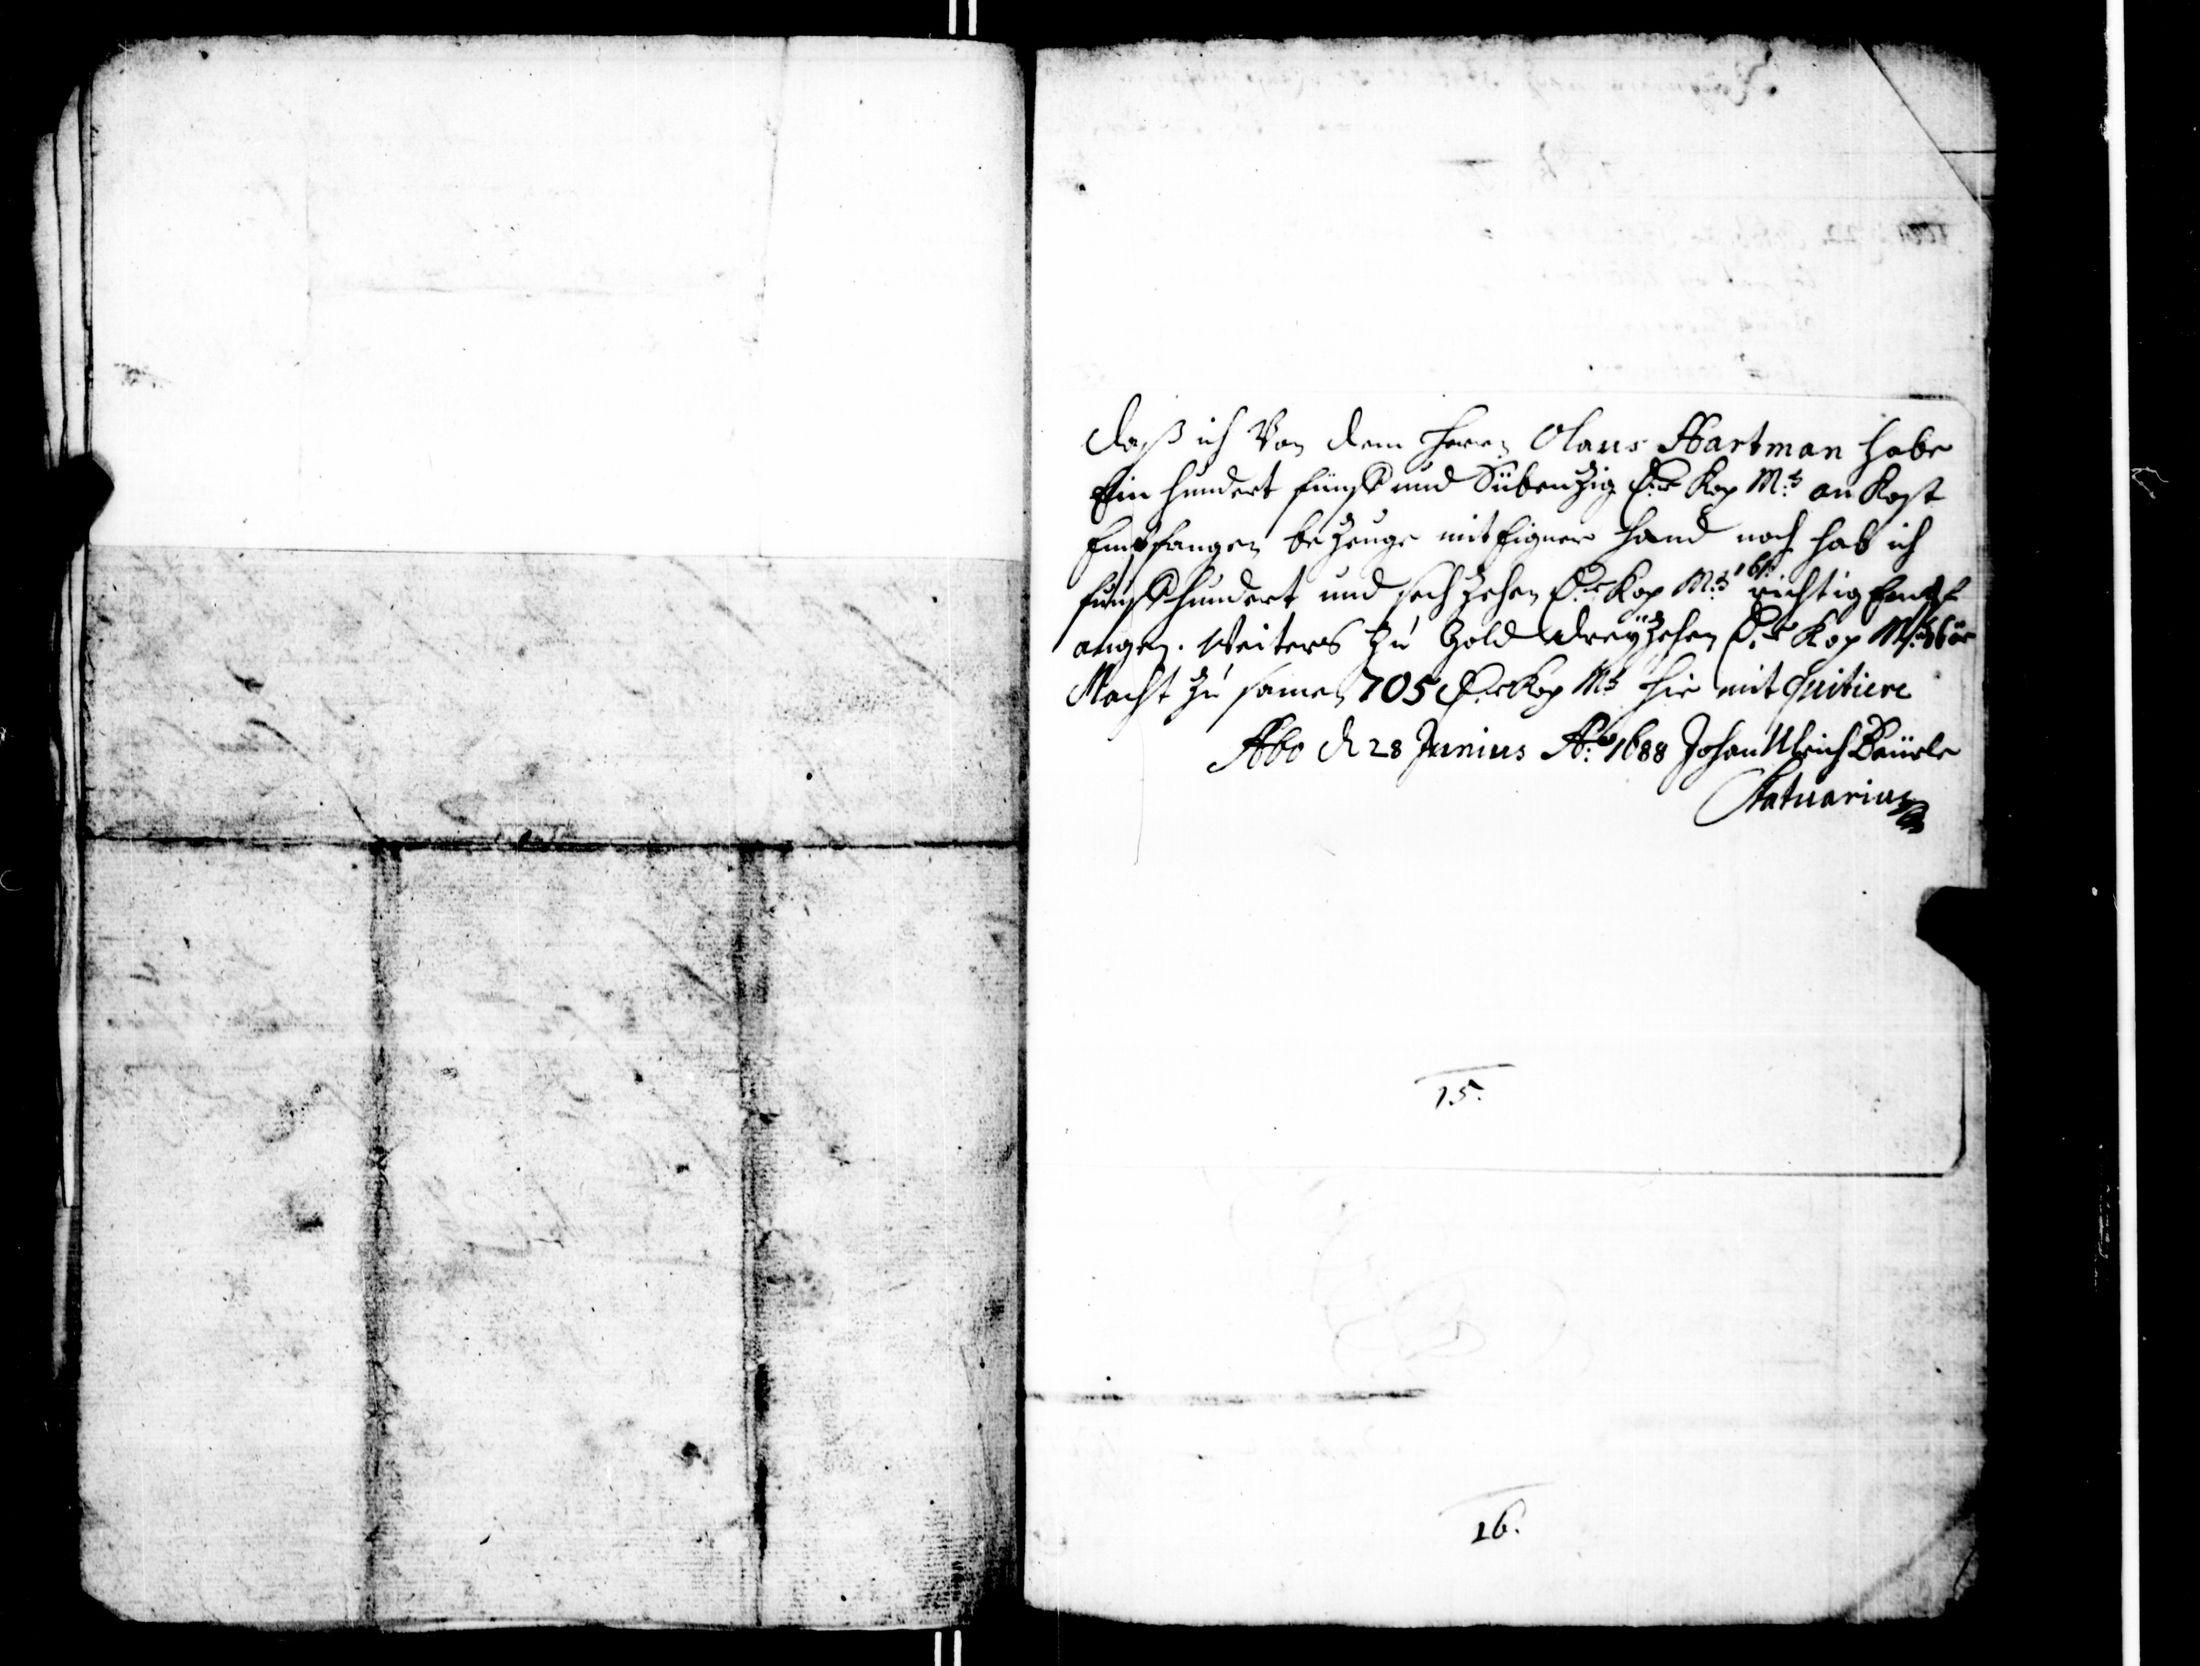 Daß ich Von dem Herrn Olaus Hartman habe
Ein hundert fünff und Sübenzig D.r Kop M.t an Kost
Empfangen bezeuge mit Eigner hand noch hab ich
fünffhundert und sechzehen D.r Kop M.t 16 richtig Empf
angen. Weiters zu Gold dreÿzehen D.r Kop M.t 16 ör
Macht zu samen 705 D.r Kop M.t hie mit quitiere
Abo d 28 Junius A.o 1688 Johan Ulrich Beürle
Statuarius
15.
16.